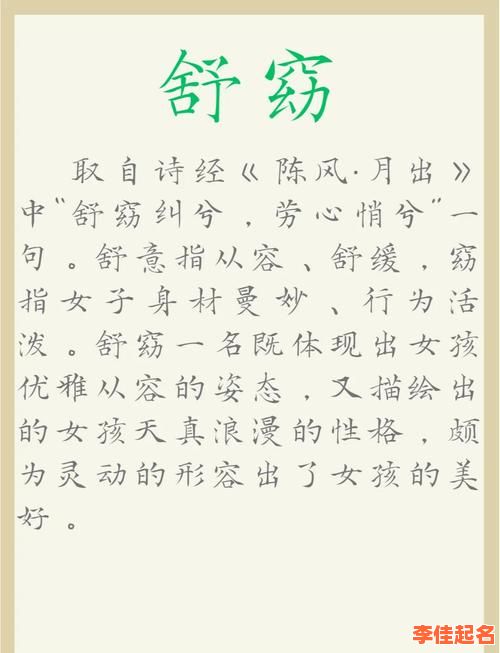 舒窈
取自诗经《陈风·月出》
中"舒窈纠兮，劳心悄兮"一
句。舒意指从容、舒缓，窈
指女子身材曼妙、行为活
泼。舒窈一名既体现出女孩
优雅从容的姿态，又描绘出
的女孩天真浪漫的性格，颇
为灵动的形容出了女孩的美
好。
李佳起名